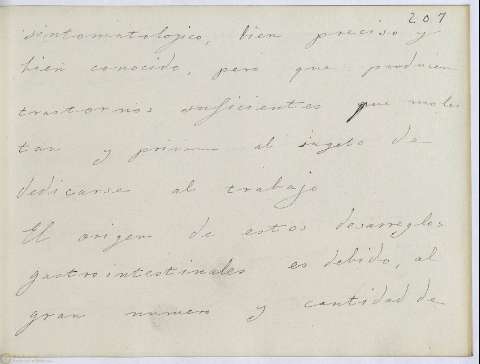 207
sintomatologico, bien preciso y
bien conocido, pero que producen
trastornos suficientes que moles
tan y privan al sugeto de
dedicarse al trabajo
El origen de estos desarreglos
gastrointestinales es debido, al
gran numero y cantidad de